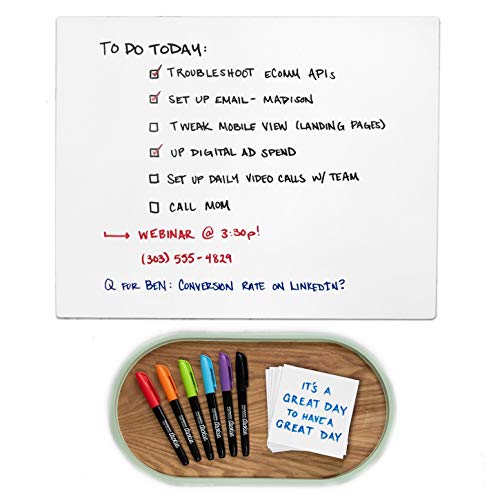 TO DO TODAY:
TROUBLESHOOT ECOMM APIS
SET UP EMAIL - MADISON
TWEAK MOBILE VIEW (LANDING PAGES)
UP DIGITAL AD SPEND
SET UP DAILY VIDEO CALLS W/ TEAM
CALL MOM
WEBINAR @ 3:30p!
(303) 555-4829
Q FOR BEN: CONVERSION RATE ON LINKEDIN?
IT'S A
GREAT DAY
TO HAVE A
GREAT DAY